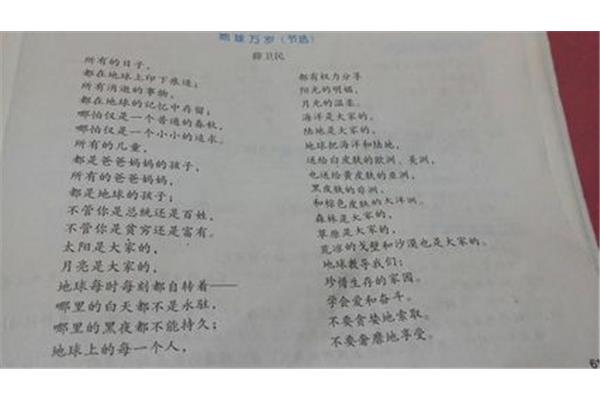 地球万岁（节选）
薛卫民
所有的日子，
都在地球上印下痕迹；
所有消逝的事物，
都在地球的记忆中存留；
哪怕仅是一个普通的春秋，
哪怕仅是一个小小的追求。
所有的儿童，
都是爸爸妈妈的孩子，
所有的爸爸妈妈，
都是地球的孩子；
不管你是总统还是百姓，
不管你是贫穷还是富有。
太阳是大家的，
月亮是大家的，
地球每时每刻都自转着——
哪里的白天都不是永驻，
哪里的黑夜都不能持久；
地球上的每一个人，
都有权力分享
阳光的明媚，
月光的温柔。
海洋是大家的，
陆地是大家的，
地球把海洋和陆地，
送给白皮肤的欧洲、美洲，
也送给黄皮肤的亚洲，
黑皮肤的非洲，
和棕色皮肤的大洋洲。
森林是大家的，
草原是大家的，
荒凉的戈壁和沙漠也是大家的。
地球教导我们：
珍惜生存的家园。
学会爱和奋斗。
不要贪婪地索取。
不要奢靡地享受。